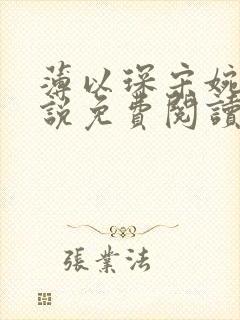 薄以琛宋婉
說免費閱讀
張業法